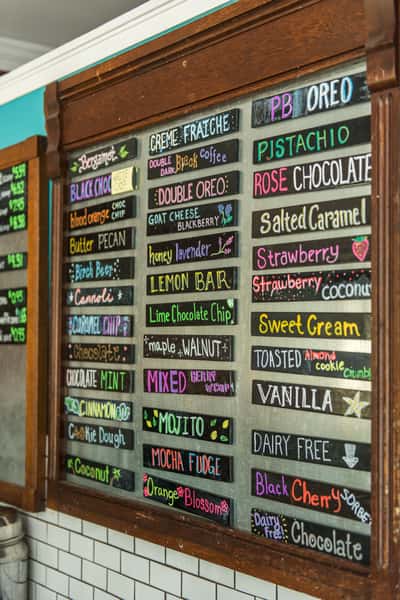 Bergamot
BLACK CHOC
blood orange CHOC CHIP
Butter PECAN
Birch Beer
Cannoli
CARAMEL CHIP
Chocolate
CHOCOLATE MINT
CINNAMON
Cookie Dough
Coconut
CRÈME FRAICHE
DOUBLE DARK Black Coffee
DOUBLE OREO
GOAT CHEESE BLACKBERRY
honey lavender
LEMON BAR
Lime Chocolate Chip
maple + WALNUT
MIXED BERRY
MOJITO
MOCHA FUDGE
Orange Blossom
P.B OREO
PISTACHIO
ROSE CHOCOLATE
Salted Caramel
Strawberry
Strawberry coconut
Sweet Cream
TOASTED Almond cookie Crumble
VANILLA
DAIRY FREE
Black Cherry SORBET
Dairy Free! Chocolate